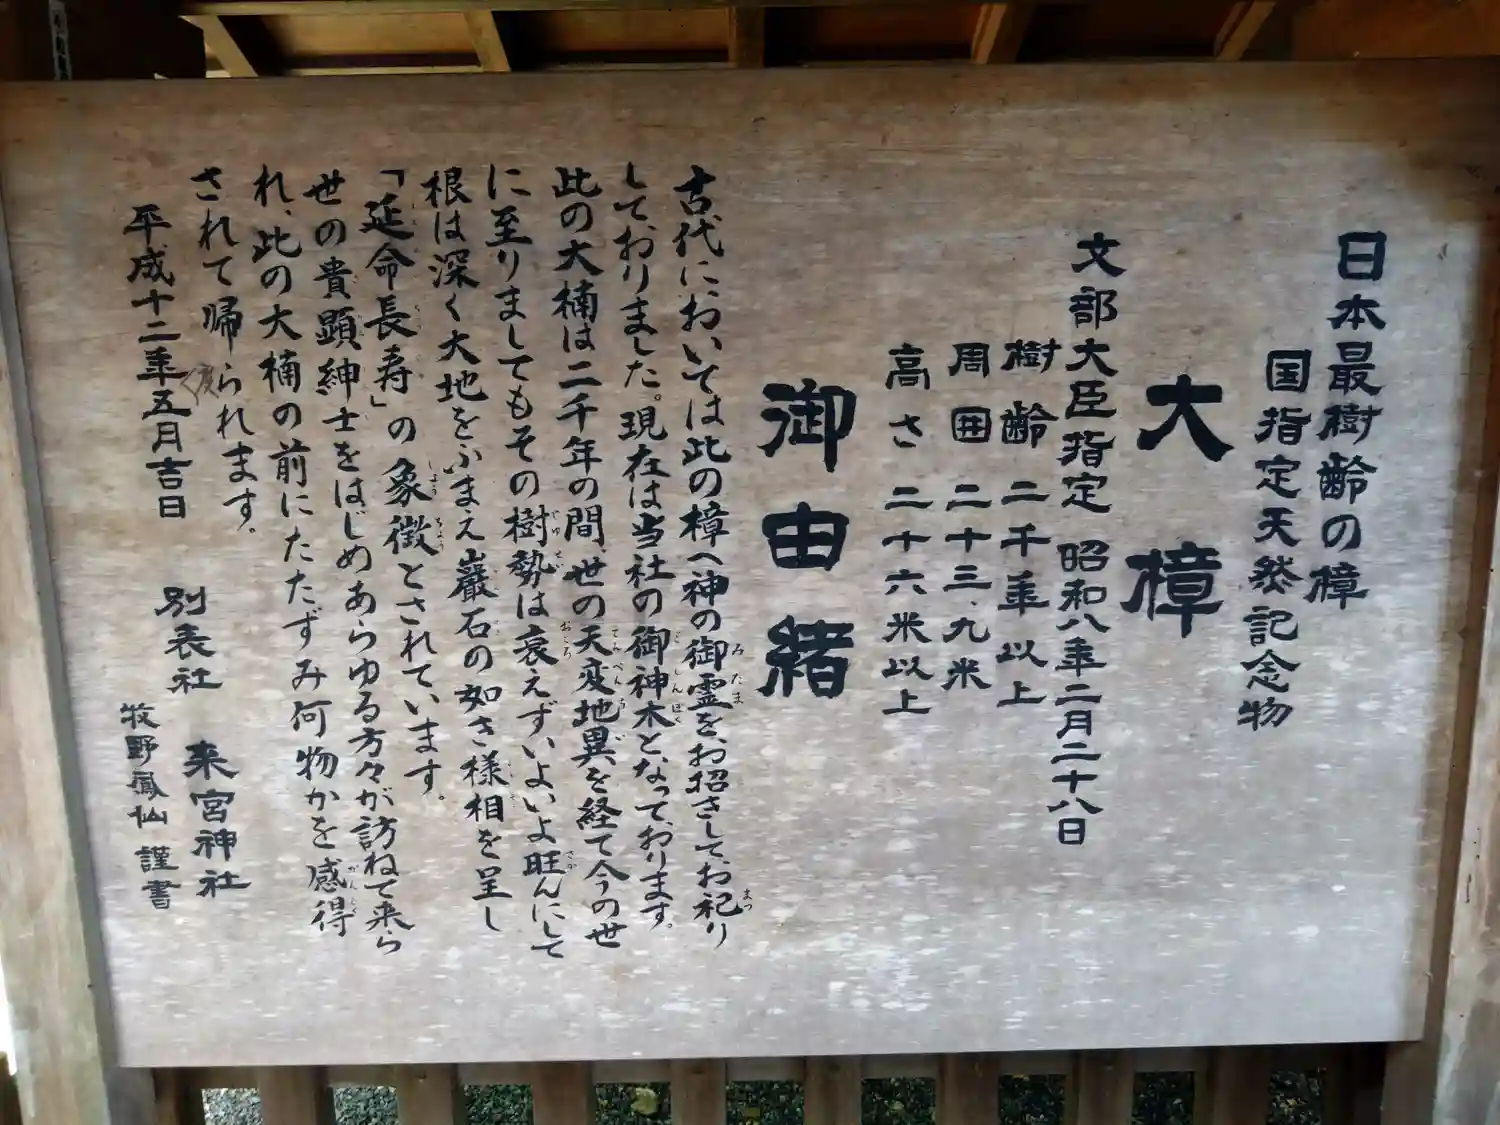 日本最樹齢の樟
国指定天然記念物
大樟
文部大臣指定 昭和八年二月二十八日
樹齢 二千年以上
周囲 二十三、九米
高さ 二十六米以上
御由緒
古代においては此の樟へ神の御霊をお招きしてお祀り
しておりました。現在は当社の御神木となっております。
此の大楠は二千年の間、世の天変地異を経て今の世
に至りましてもその樹勢は衰えずいよいよ旺んにして
根は深く大地をふまえ巖石の如き様相を呈し
「延命長寿」の象徴とされています。
世の貴顕紳士をはじめあらゆる方々が訪ねて来ら
れ、此の大楠の前にたたずみ何物かを感得
されて帰られます。
平成十二年五月吉日
別表社 来宮神社
牧野鳳仙 謹書